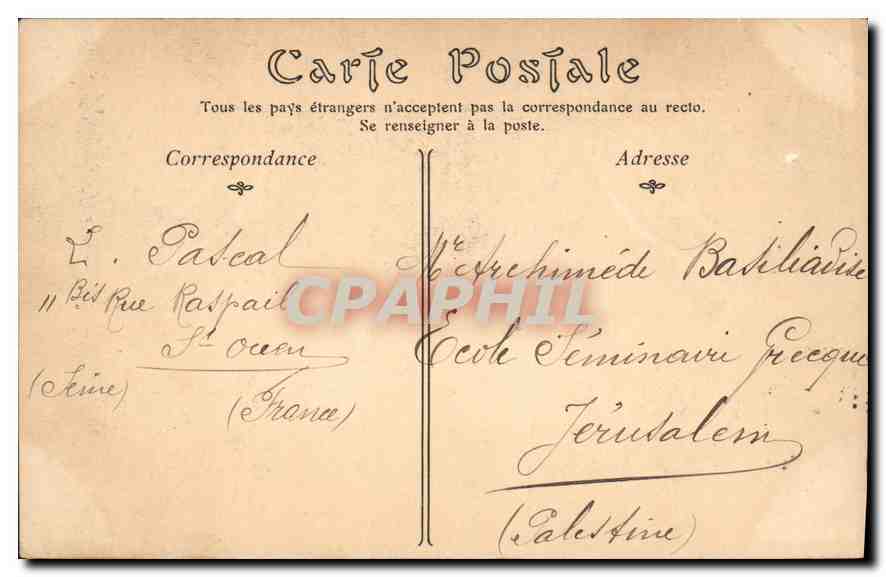 Carte Postale
Tous les pays étrangers n'acceptent pas la correspondance au recto.
Se renseigner à la poste.
Correspondance
L. Pascal
11 Bis Rue Raspail
St Ouen
(Seine)
(France)
Adresse
Mr Archimède Basiliadise
Ecole Séminaire Grecque
Jérusalem
(Palestine)
CPAPHIL